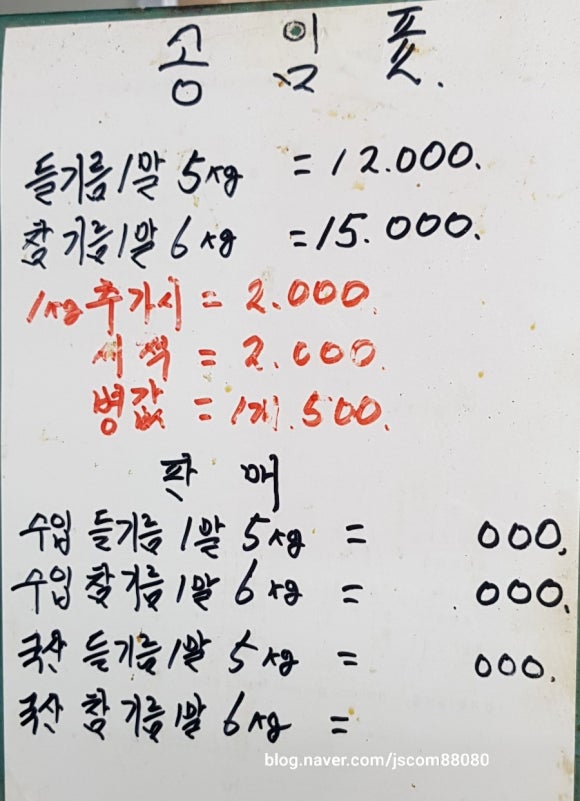 공 임 표.
들기름 1말 5kg = 12.000.
참기름 1말 6kg = 15.000.
1kg 추가시 = 2.000.
세척 = 2.000.
병값 = 1개. 500.
판 매
수입 들기름 1말 5kg = 000.
수입 참기름 1말 6kg = 000.
국산 들기름 1말 5kg = 000.
국산 참기름 1말 6kg =
blog.naver.com/jscom88080